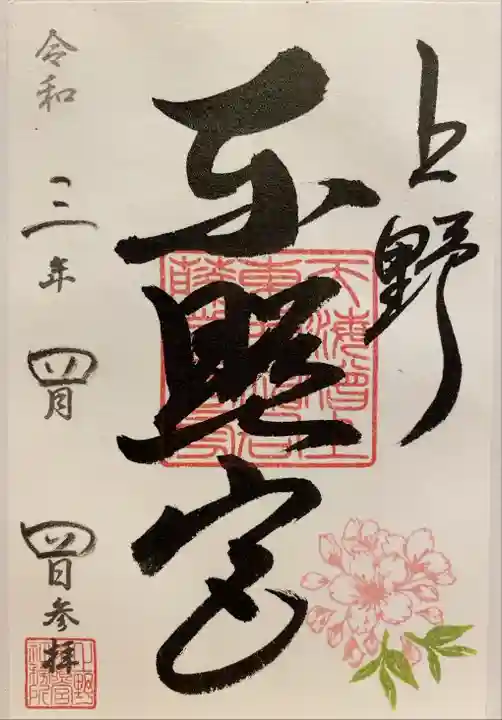 上野
東照宮
令和三年四月四日参拝